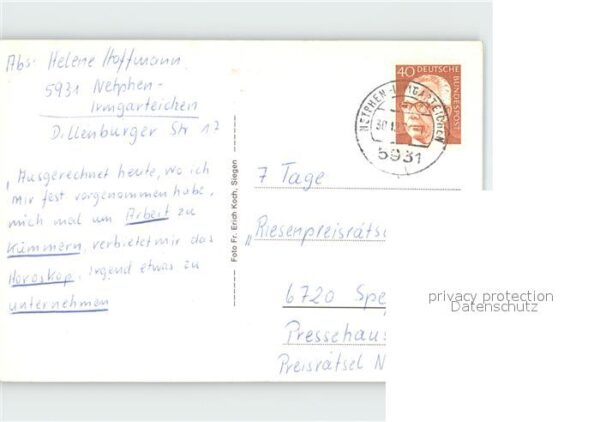 Abs: Helene Hoffmann
5931 Netphen-
Irmgarteichen
Dillenburger Str 17
„Ausgerechnet heute, wo ich
mir fest vorgenommen habe,
mich mal um Arbeit zu
kümmern, verbietet mir das
Horoskop, irgend etwas zu
unternehmen
Foto Fr. Erich Koch, Siegen
40 DEUTSCHE
BUNDESPOST
NETPHEN-IRMGARTEICHEN
5931
7 Tage
„Riesenpreisräts
6720 Spe
Pressehaus
Preisrätsel N
privacy protection
Datenschutz